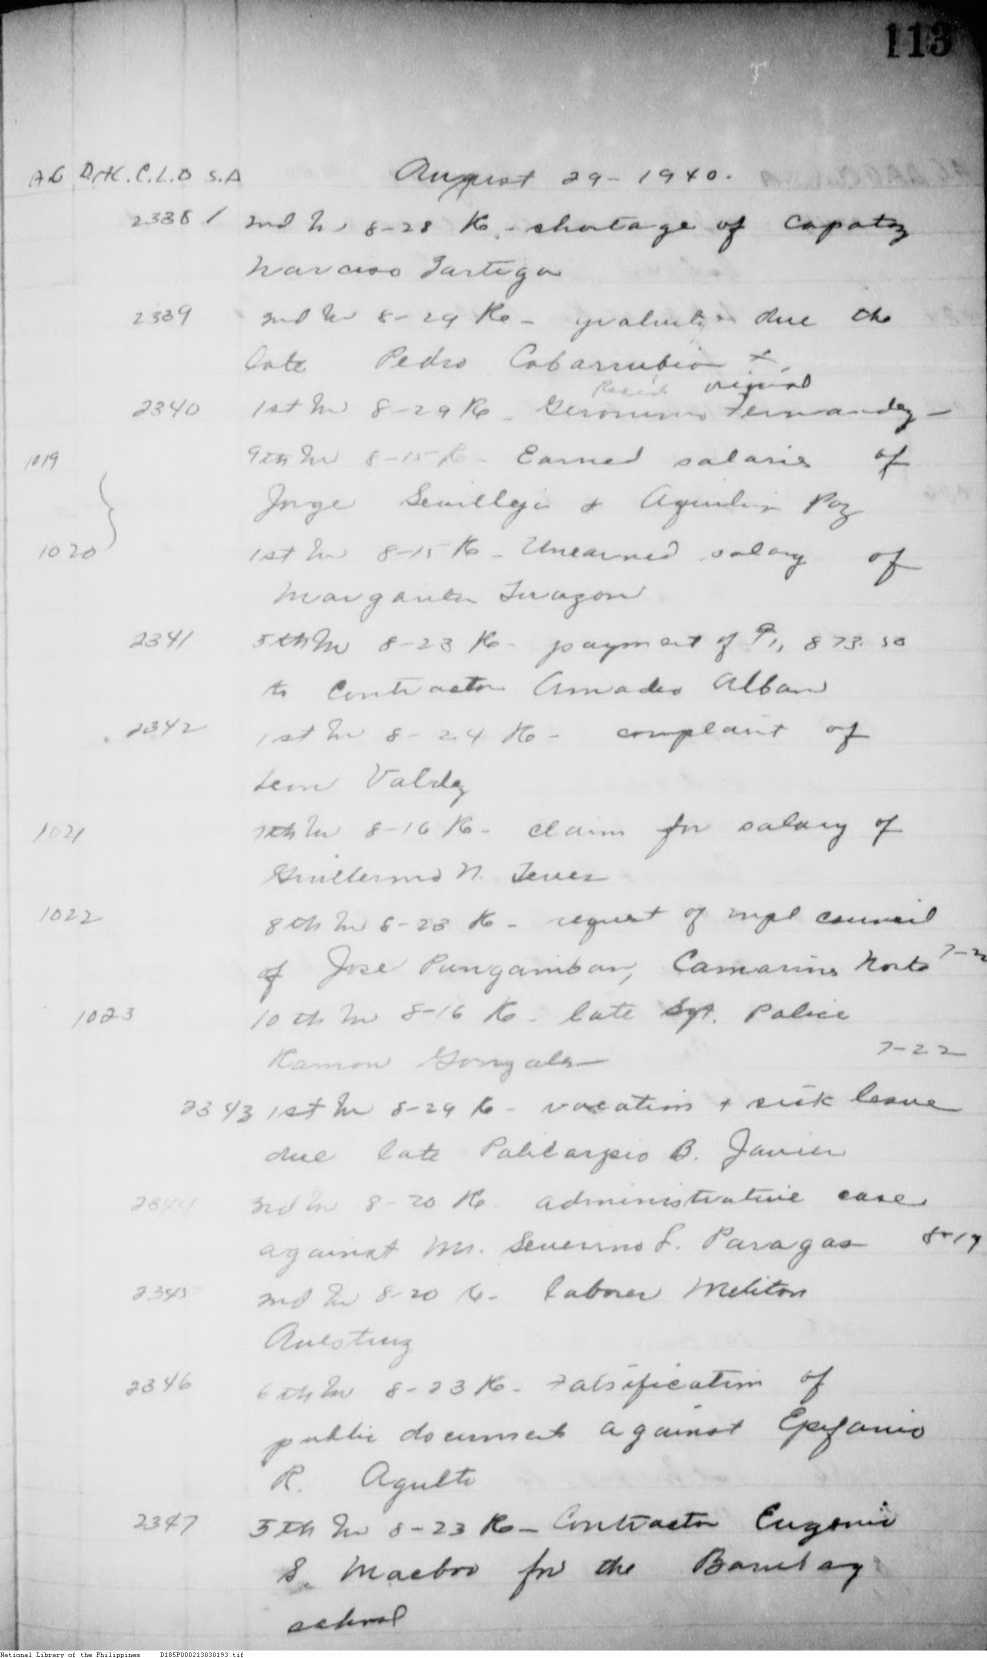 113
August 29 - 1940.
2338 / 2nd In 8-28 Re - shortage of Capataz
Narciso
2339 2nd In 8-29 Re - gratuity due the
late Pedro Cabarrubia
original
2340 1st In 8-29 Re - Geronimo Fernandez -
1019 9th In 8-15 Re - Earned salaries of
Jorge & Paz
1020 1st In 8-15 Re - Unearned salary of
Tuazon
2341 5th In 8-23 Re - payment of ₱1,873.50
to Contractor Amadeo Alban
2342 1st In 8-24 Re - complaint of
Leon Valdez
1021 In 8-16 Re - claim for salary of
Guillermo N.
1022 8th In 8-23 Re - request of mpl council
of Jose Panganiban, Camarines Norte 7-22
1023 10th In 8-16 Re - late Sgt. Police
Ramon Gonzales 7-22
2343 1st In 8-29 Re - vacation & sick leave
due late Policarpio B. Javier
2344 3rd In 8-20 Re administrative case
against Mr. Severino L. Paragas 8-19
2345 2nd In 8-20 Re - laborer Meliton
2346 6th In 8-23 Re - Falsification of
public documents against Epifanio
R.
2347 5th In 8-23 Re - Contractor Eugenio
S. for the
school
National Library of the Philippines D185P000213030193.tif